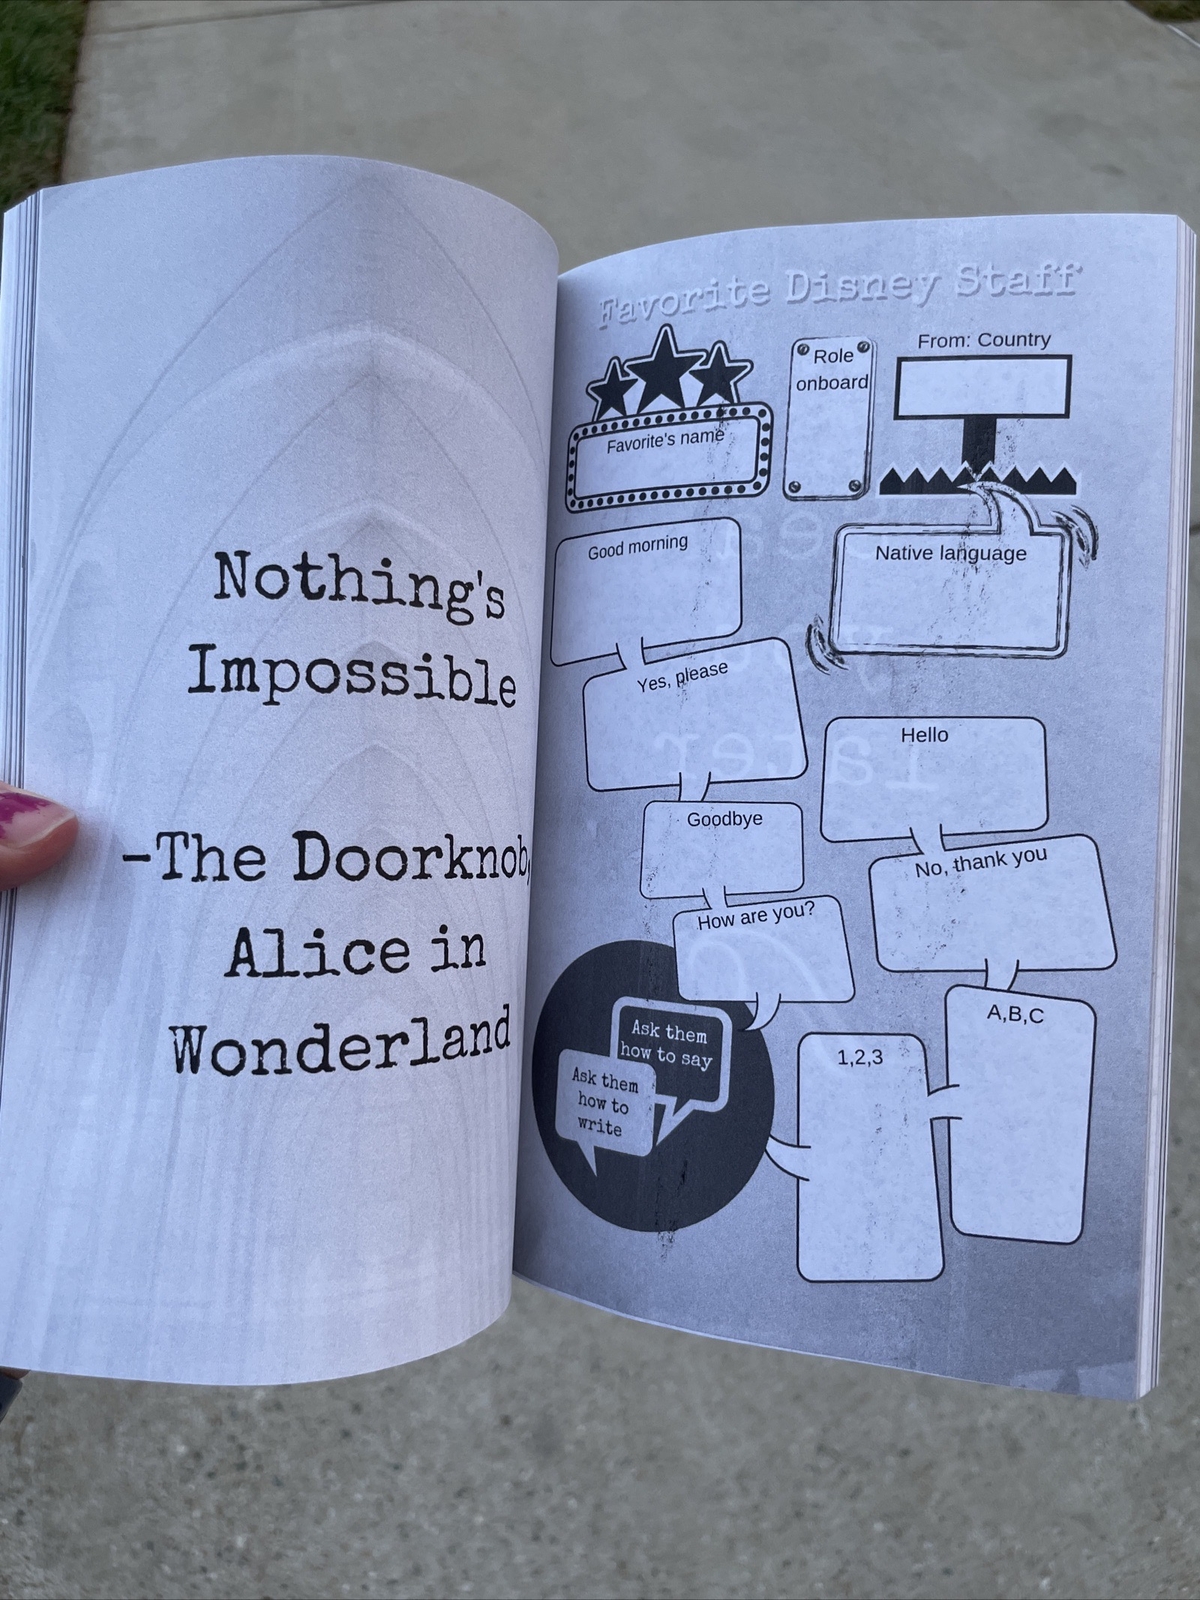 Nothing's
Impossible
-The Doorknob,
Alice in
Wonderland
Favorite Disney Staff
Favorite's name
Role
onboard
From: Country
Good morning
Native language
Yes, please
Hello
Goodbye
No, thank you
How are you?
A,B,C
1,2,3
Ask them
how to say
Ask them
how to
write